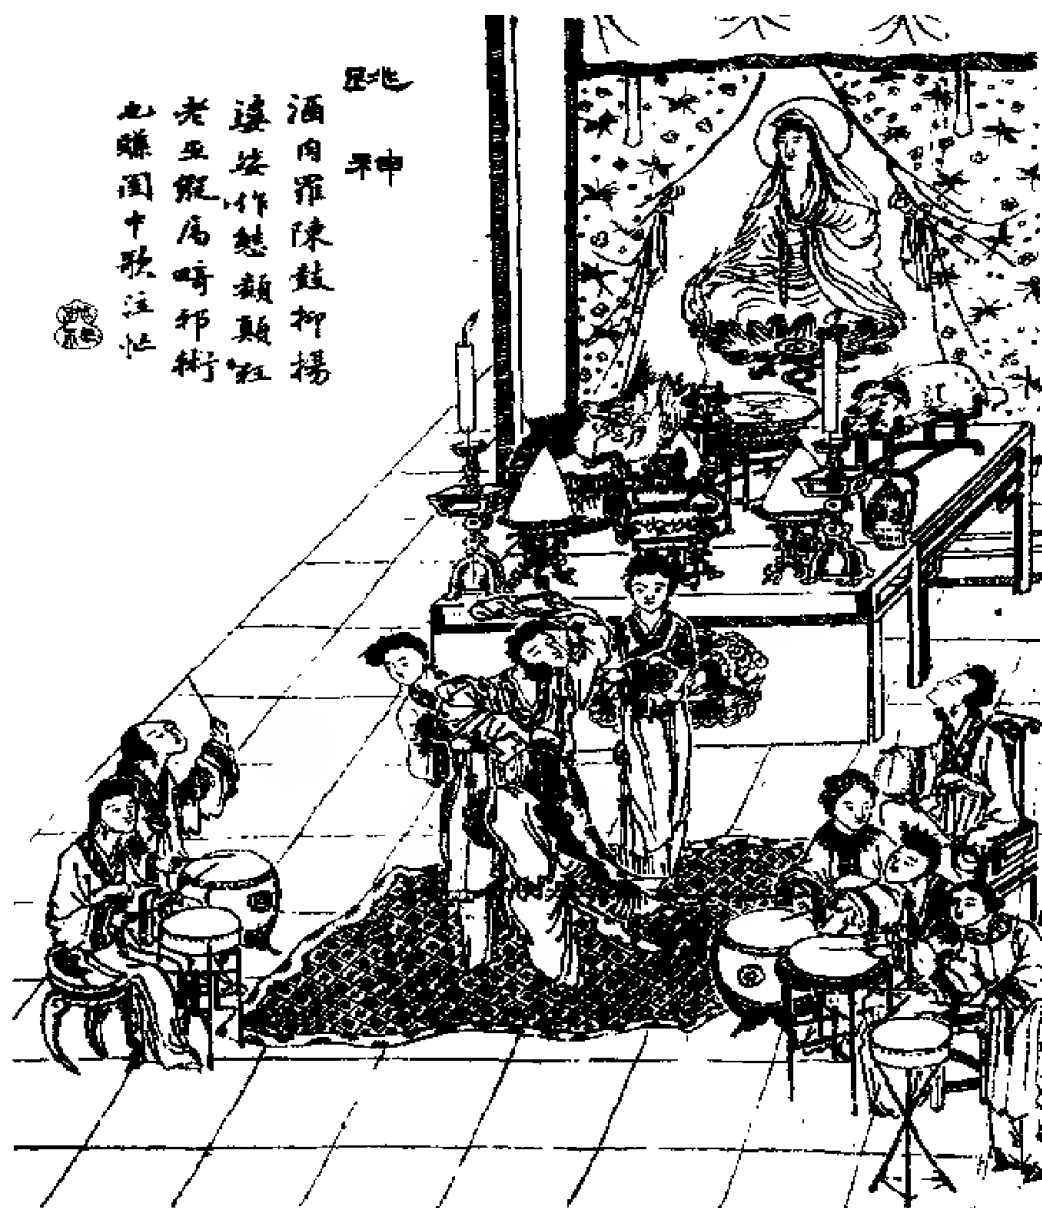 跳神
酒肉羅陳鼓抑揚
婆娑作態類顛狂
老巫縱屬畸邪術
也賺閨中歌注忙